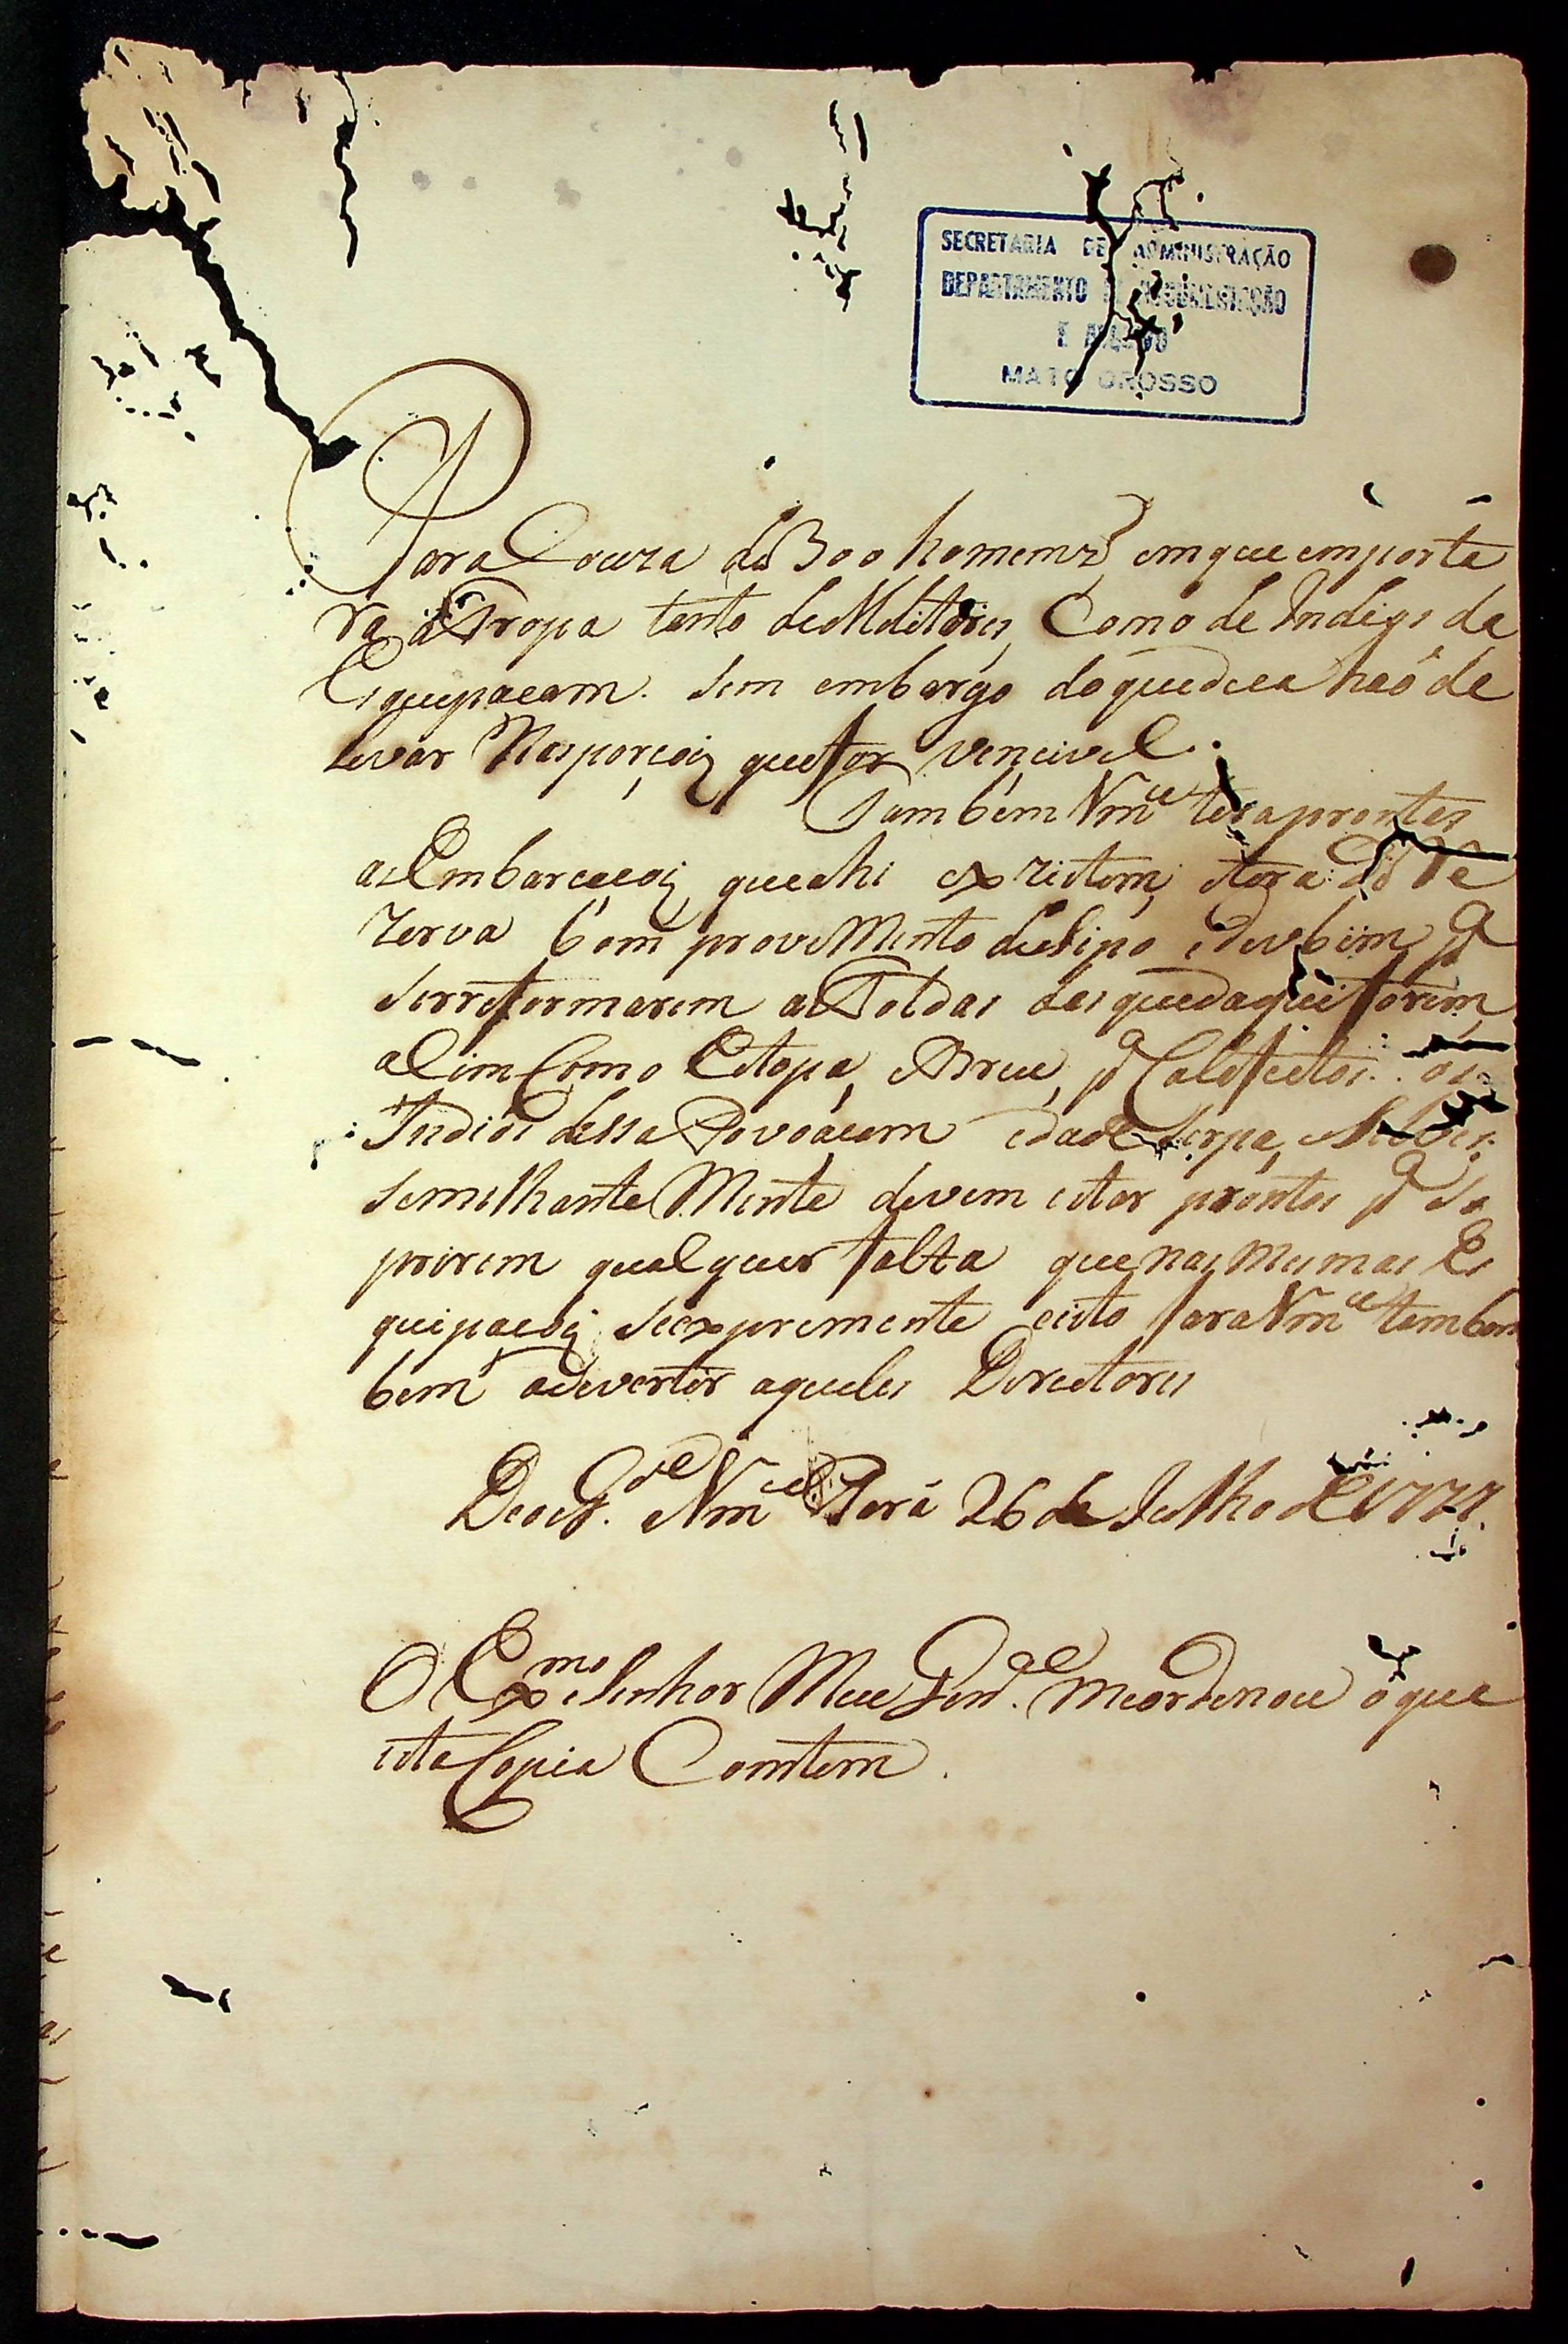 SECRETARIA DE ADMINISTRAÇÃO
DEPARTAMENTO DE DOCUMENTAÇÃO
E ARQUIVO
MATO GROSSO
Para Couza de 300 homemz, emque emporta
ra a Tropa tanto de Melitares, Como de Indios da
Esquipacam. Sem embargo doque della haó de
levar Nas porçois que for vencivel.
Tambem Vm.ce tera prontas
as Embarcacois que ahi exzistem, e tera de Re
zerva bom proveMento de Sipo, e Juvbim p.a
Serreformarem as Toldas das quedaqui forem,
asim Como Estopa, e Breu, p.a Calafeitos. os
Indios dessa Povoacam e da de Serpa, e
Semilhante Mente devem estar prontos p.a Su
prirem qualquer falta que nas mesmas Es
quipacois Se expremente e isto fara Vm.ce tambem
bem adevertir aqueles Directores
Deos G.de a Vm.ce Pará 26 de Julho de 1777.
O Ex.mo Senhor Meu Gen.al me ordenou o que
esta Copia Comtem.